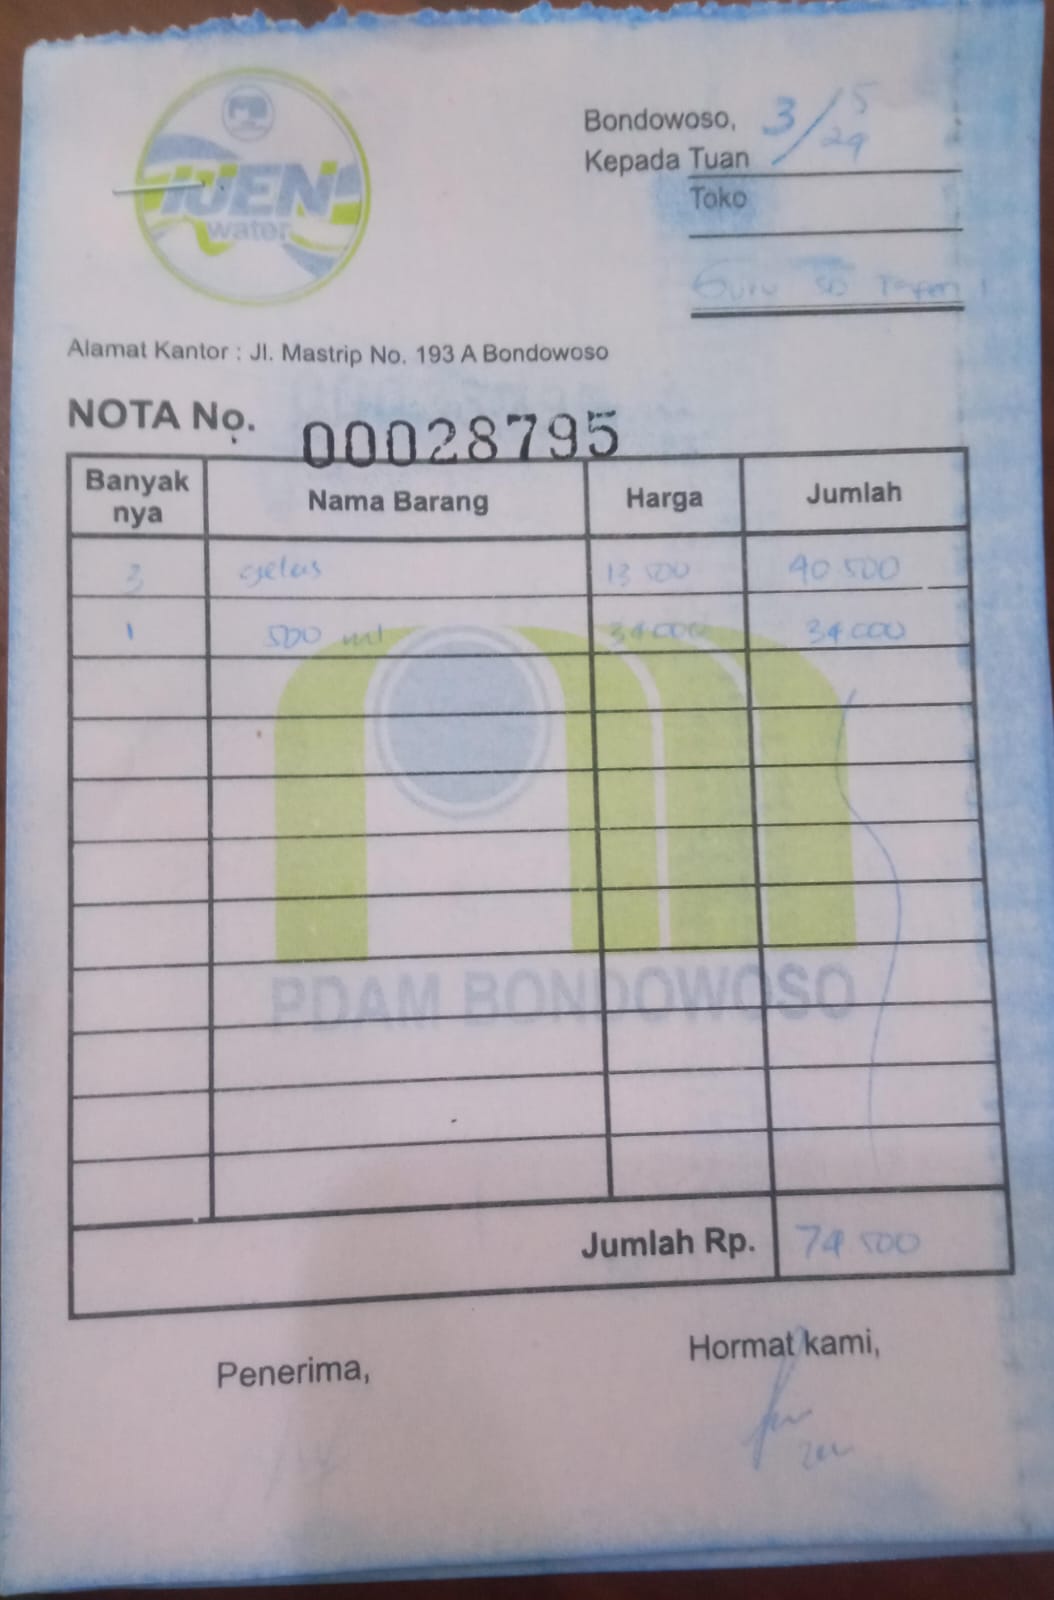 IJEN
water
Bondowoso, 3/5
24
Kepada Tuan
Toko
Guru SD Tapen 1
Alamat Kantor : Jl. Mastrip No. 193 A Bondowoso
NOTA No. 00028795
Banyak nya Nama Barang Harga Jumlah
3 gelas 13 500 40 500
1 500 ml 34 000 34 000
PDAM BONDOWOSO
Jumlah Rp. 74.500
Penerima, Hormat kami,